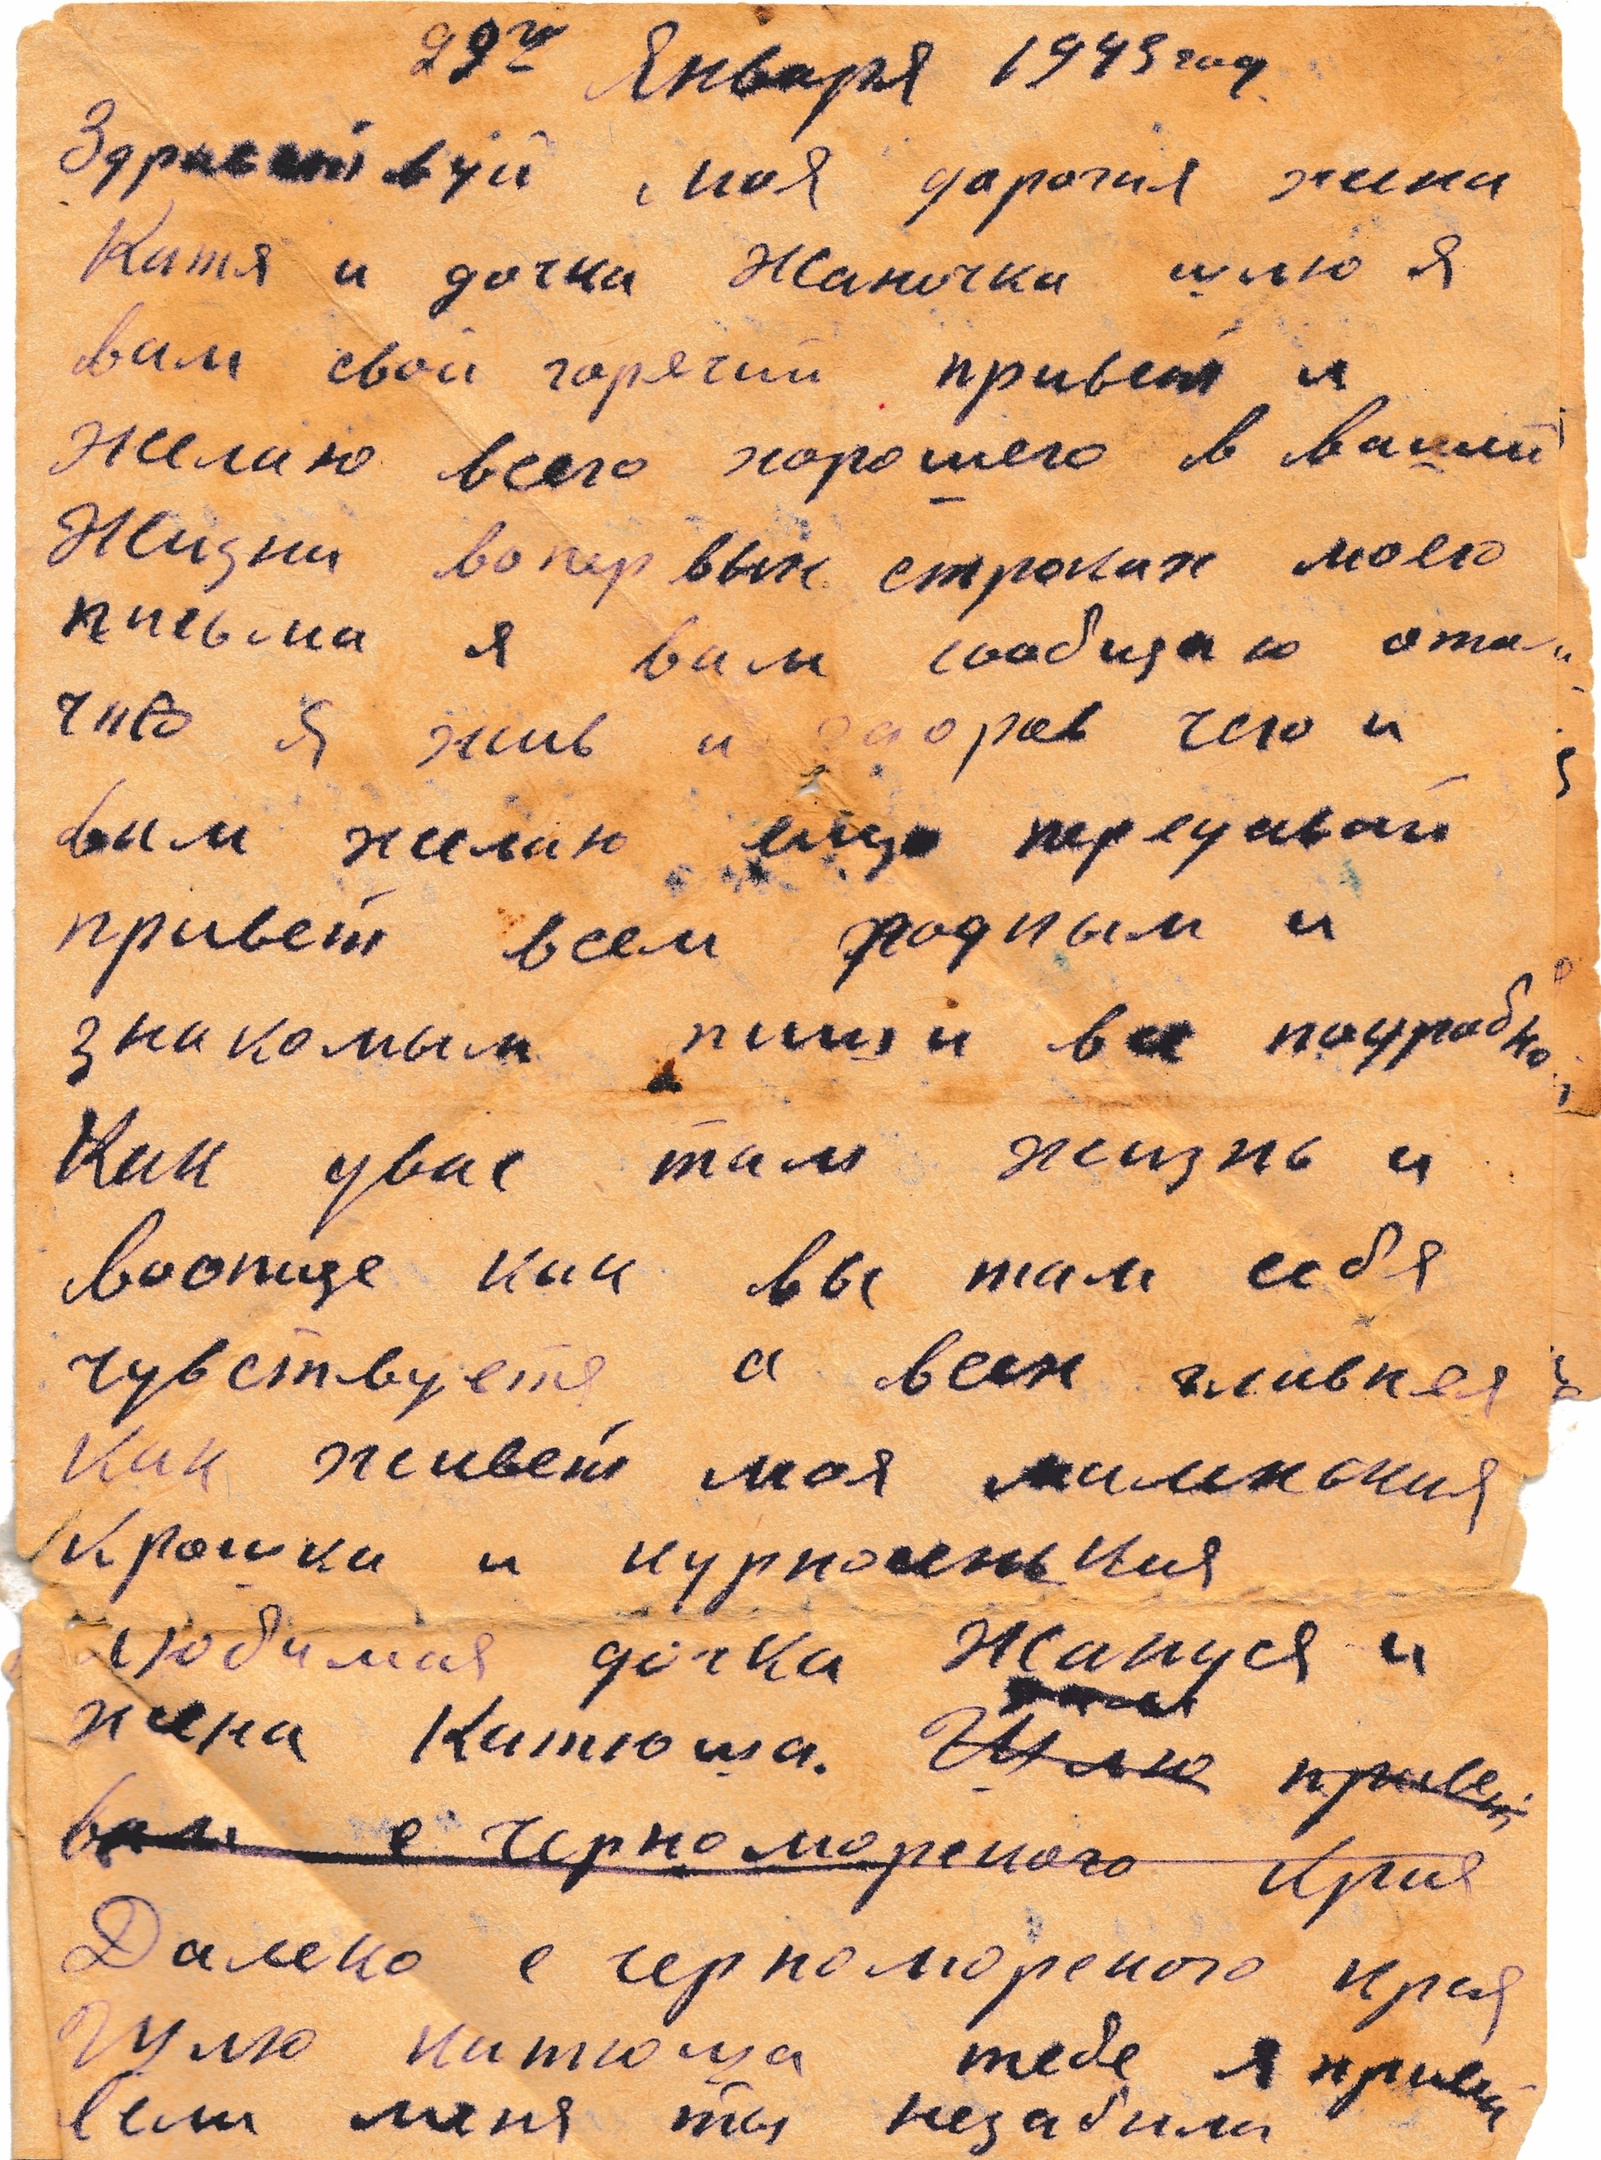 29го Января 1945 год
Здравствуй моя дорогая жена
Катя и дочка Жаночка шлю я
вам свой горячий привет и
желаю всего хорошего в вашей
Жизни вопервых строках моего
письма я вам сообщаю
что я жив и здоров чего и
вам желаю ещо передавай
привет всем родным и
знакомым пиши все подробно
Как увас там жизнь и
воопще как вы там себя
чувствуетя а всех главная
как живет моя маленькая
Крошка и курносенькия
любимая дочка Жануся и
жена Катюша. Шлю привет
вам с Черноморского Края
Далеко с черноморского края
Шлю катюша тебе я привет
если меня ты незабыла